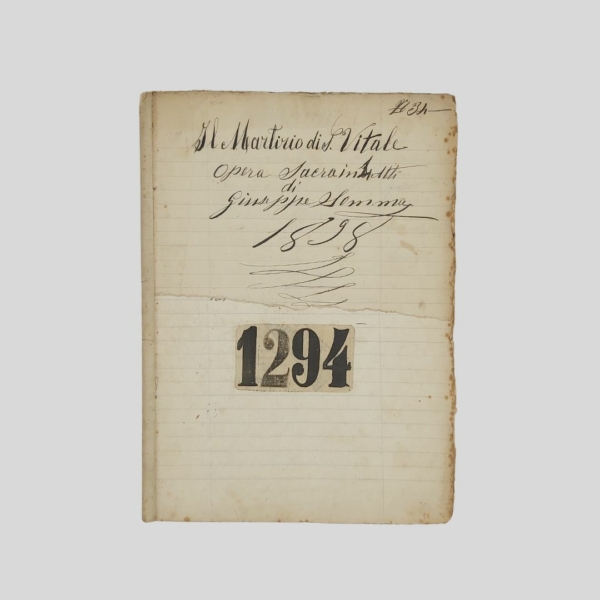 N 34
Il Martirio di S. Vitale
Opera Sacra in 4 Atti
di
Giuseppe Somma
1898
1294